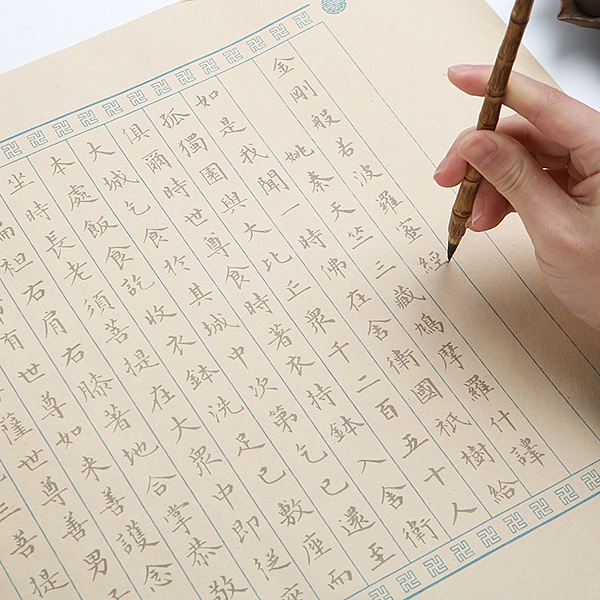 金剛般若波羅蜜經
姚秦天竺三藏鳩摩羅什譯
如是我聞一時佛在舍衛國祇樹給
孤獨園與大比丘眾千二百五十人
俱爾時世尊食時著衣持鉢入舍衛
大城乞食於其城中次第乞已還至
本處飯食訖收衣鉢洗足已敷座而
坐時長老須菩提在大眾中即從座
袒右肩右膝著地合掌恭敬
有世尊如來善護念
薩世尊善男子
三菩提